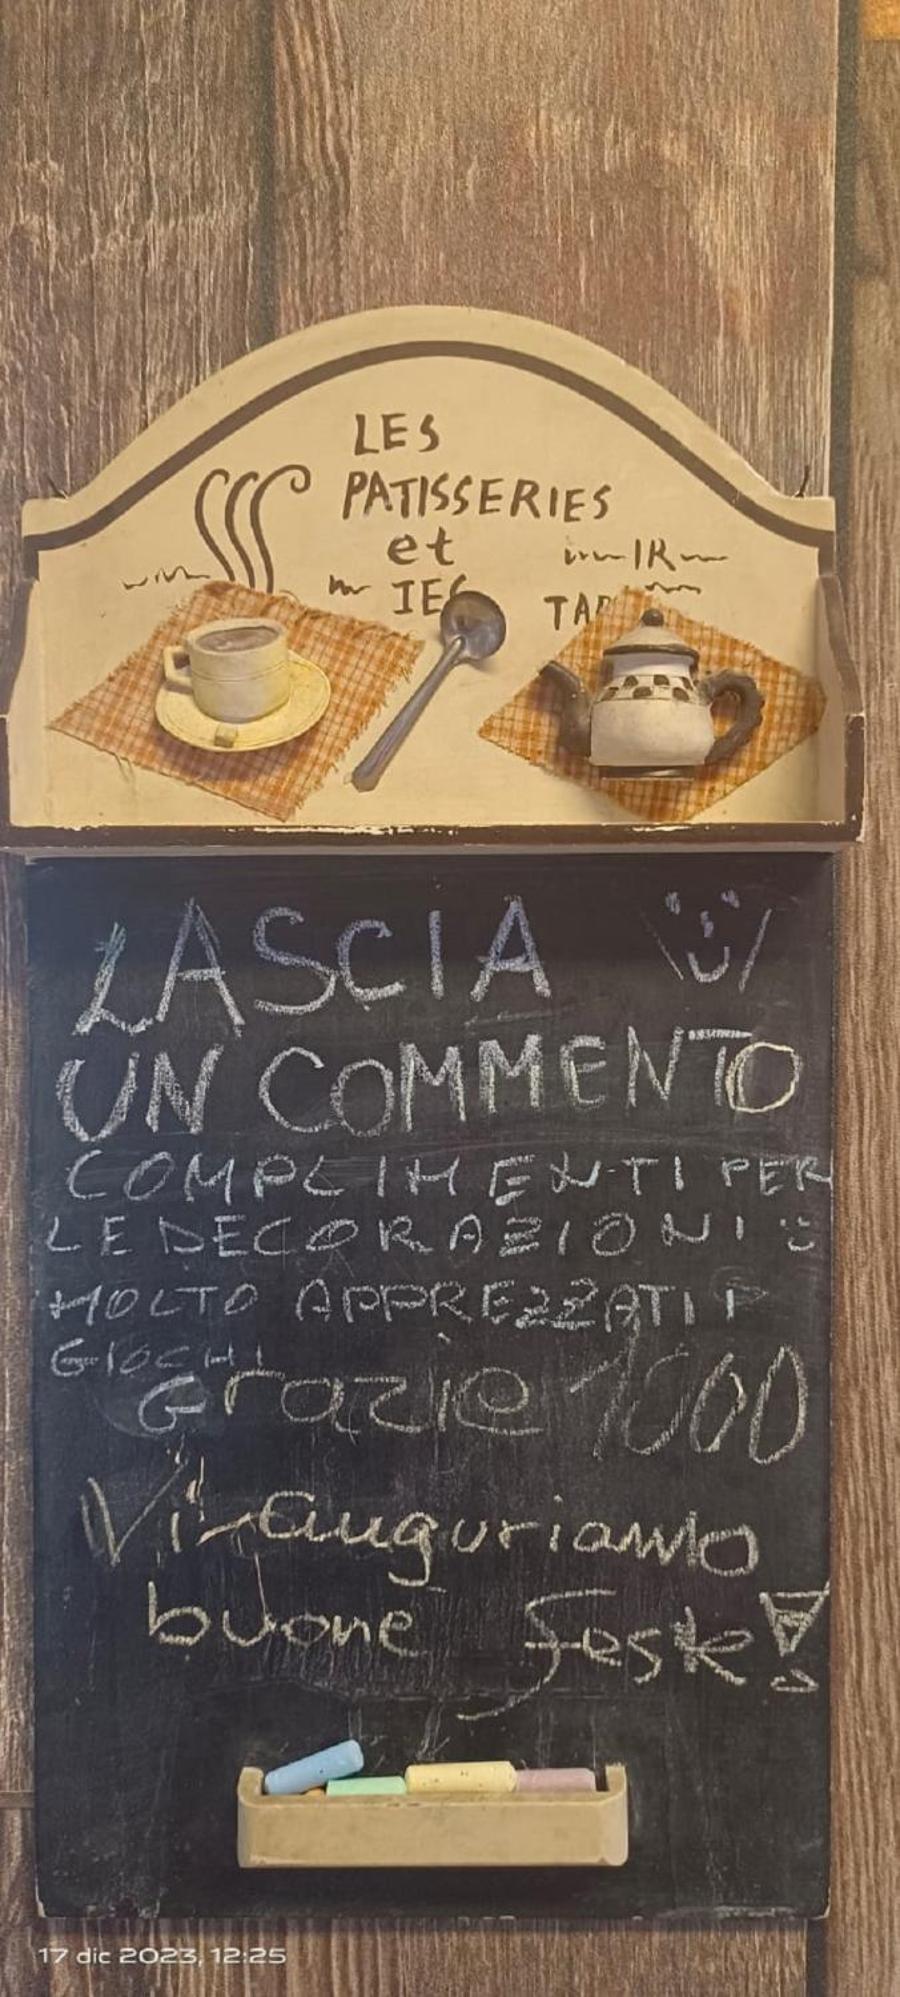 LES
PATISSERIES
et
IR
IES
TAR
LASCIA
UN COMMENTO
COMPLIMENTI PER
LE DECORAZIONI :)
MOLTO APPREZZATI
GIOCHI
Grazie 1000
Vi auguriamo
buone feste!
17 dic 2023, 12:25